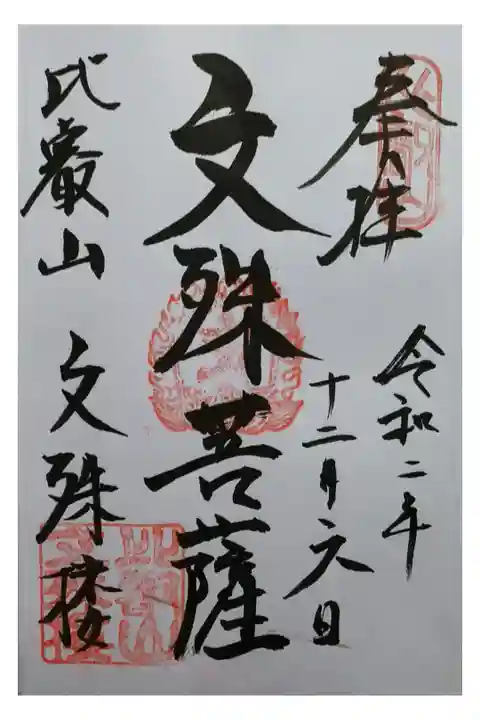 奉拝
令和二年
十二月六日
文殊菩薩
比叡山 文殊楼